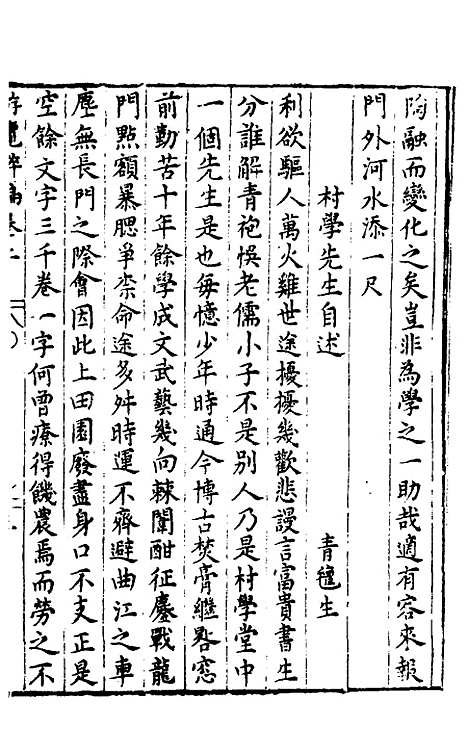 陶融而變化之矣豈非為學之一助哉適有客來報
門外河水添一尺
村學先生自述　青氊生
利欲驅人萬火雞世途擾擾幾歡悲謾言富貴書生
分誰解青袍悞老儒小子不是別人乃是村學堂中
一個先生是也每憶少年時通今博古焚膏繼晷窓
前勤苦十年餘學成文武藝幾向棘闈酣征鏖戰龍
門點額暴腮爭柰命途多舛時運不齊避曲江之車
塵無長門之際會因此上田園廢盡身口不支正是
空餘文字三千卷一字何曾療得饑農焉而勞之不
卷二